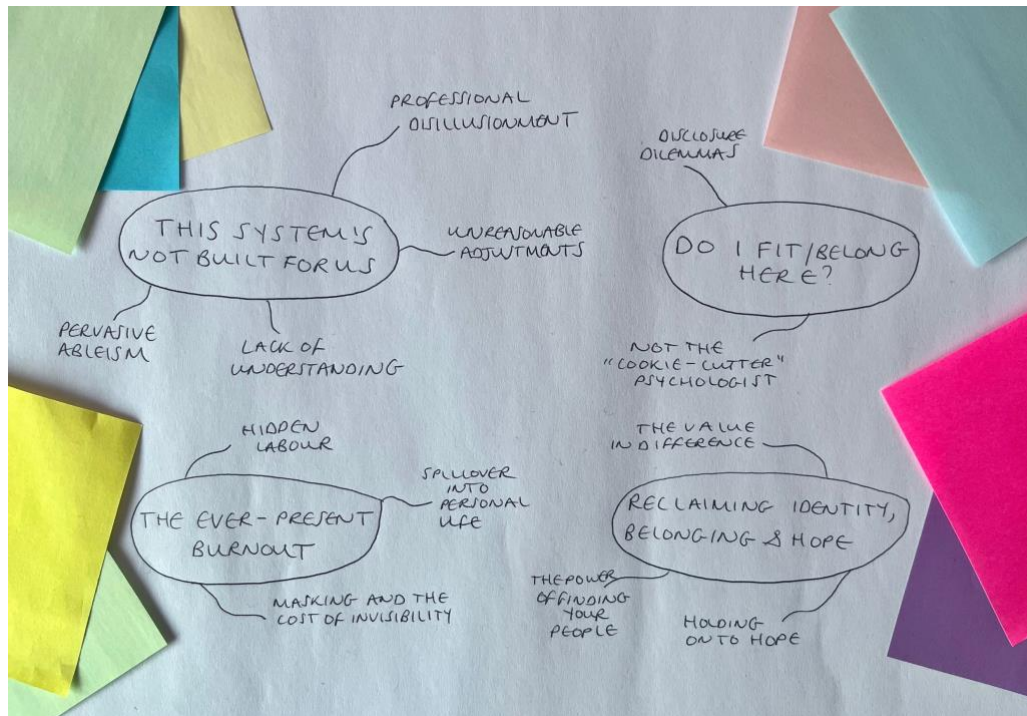 PROFESSIONAL
DISILLUSIONMENT
THIS SYSTEM'S
NOT BUILT FOR US
UNREASONABLE
ADJUSTMENTS
PERVASIVE
ABLEISM
LACK OF
UNDERSTANDING
DISCLOSURE
DILEMMAS
DO I FIT/BELONG
HERE?
NOT THE
"COOKIE-CUTTER"
PSYCHOLOGIST
HIDDEN
LABOUR
THE EVER-PRESENT
BURNOUT
SPILLOVER
INTO
PERSONAL
LIFE
MASKING AND THE
COST OF INVISIBILITY
THE VALUE
IN DIFFERENCE
RECLAIMING IDENTITY,
BELONGING & HOPE
THE POWER
OF FINDING
YOUR
PEOPLE
HOLDING
ON TO HOPE